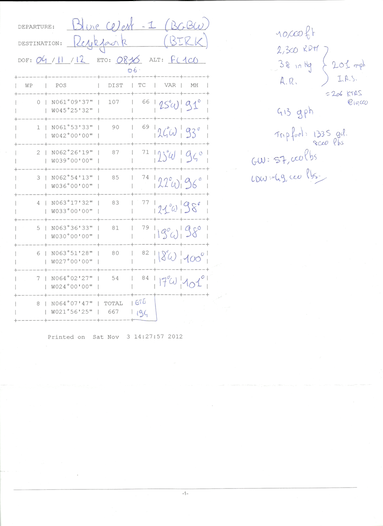 DEPARTURE: Blue West - 1 (BGBW)
DESTINATION: Reykjavik (BIRK)
DOF: 04/11/12 ETO: ALT: FL100
06
| WP | POS | DIST | TC | VAR | MH |
| 0 | N061°09'37" | 107 | 66 | 25°W | 91° |
| | W045°25'32" |
| 1 | N061°53'33" | 90 | 69 | 24°W | 93° |
| | W042°00'00" |
| 2 | N062°26'19" | 87 | 71 | 23°W | 94° |
| | W039°00'00" |
| 3 | N062°54'13" | 85 | 74 | 22°W | 96° |
| | W036°00'00" |
| 4 | N063°17'32" | 83 | 77 | 21°W | 98° |
| | W033°00'00" |
| 5 | N063°36'33" | 81 | 79 | 19°W | 98° |
| | W030°00'00" |
| 6 | N063°51'28" | 80 | 82 | 18°W | 100° |
| | W027°00'00" |
| 7 | N064°02'27" | 54 | 84 | 17°W | 101° |
| | W024°00'00" |
| 8 | N064°07'47" | TOTAL |
| | W021°56'25" | 667 | 196
Printed on Sat Nov 3 14:27:57 2012
10,000 ft
2,300 RPM
38 in Hg
A.R.
201 mph
I.A.S.
413 gph
Trip fuel: 1335 gal
lbs
GW: 57,000 lbs
LDW ~49,000 lbs
-1-